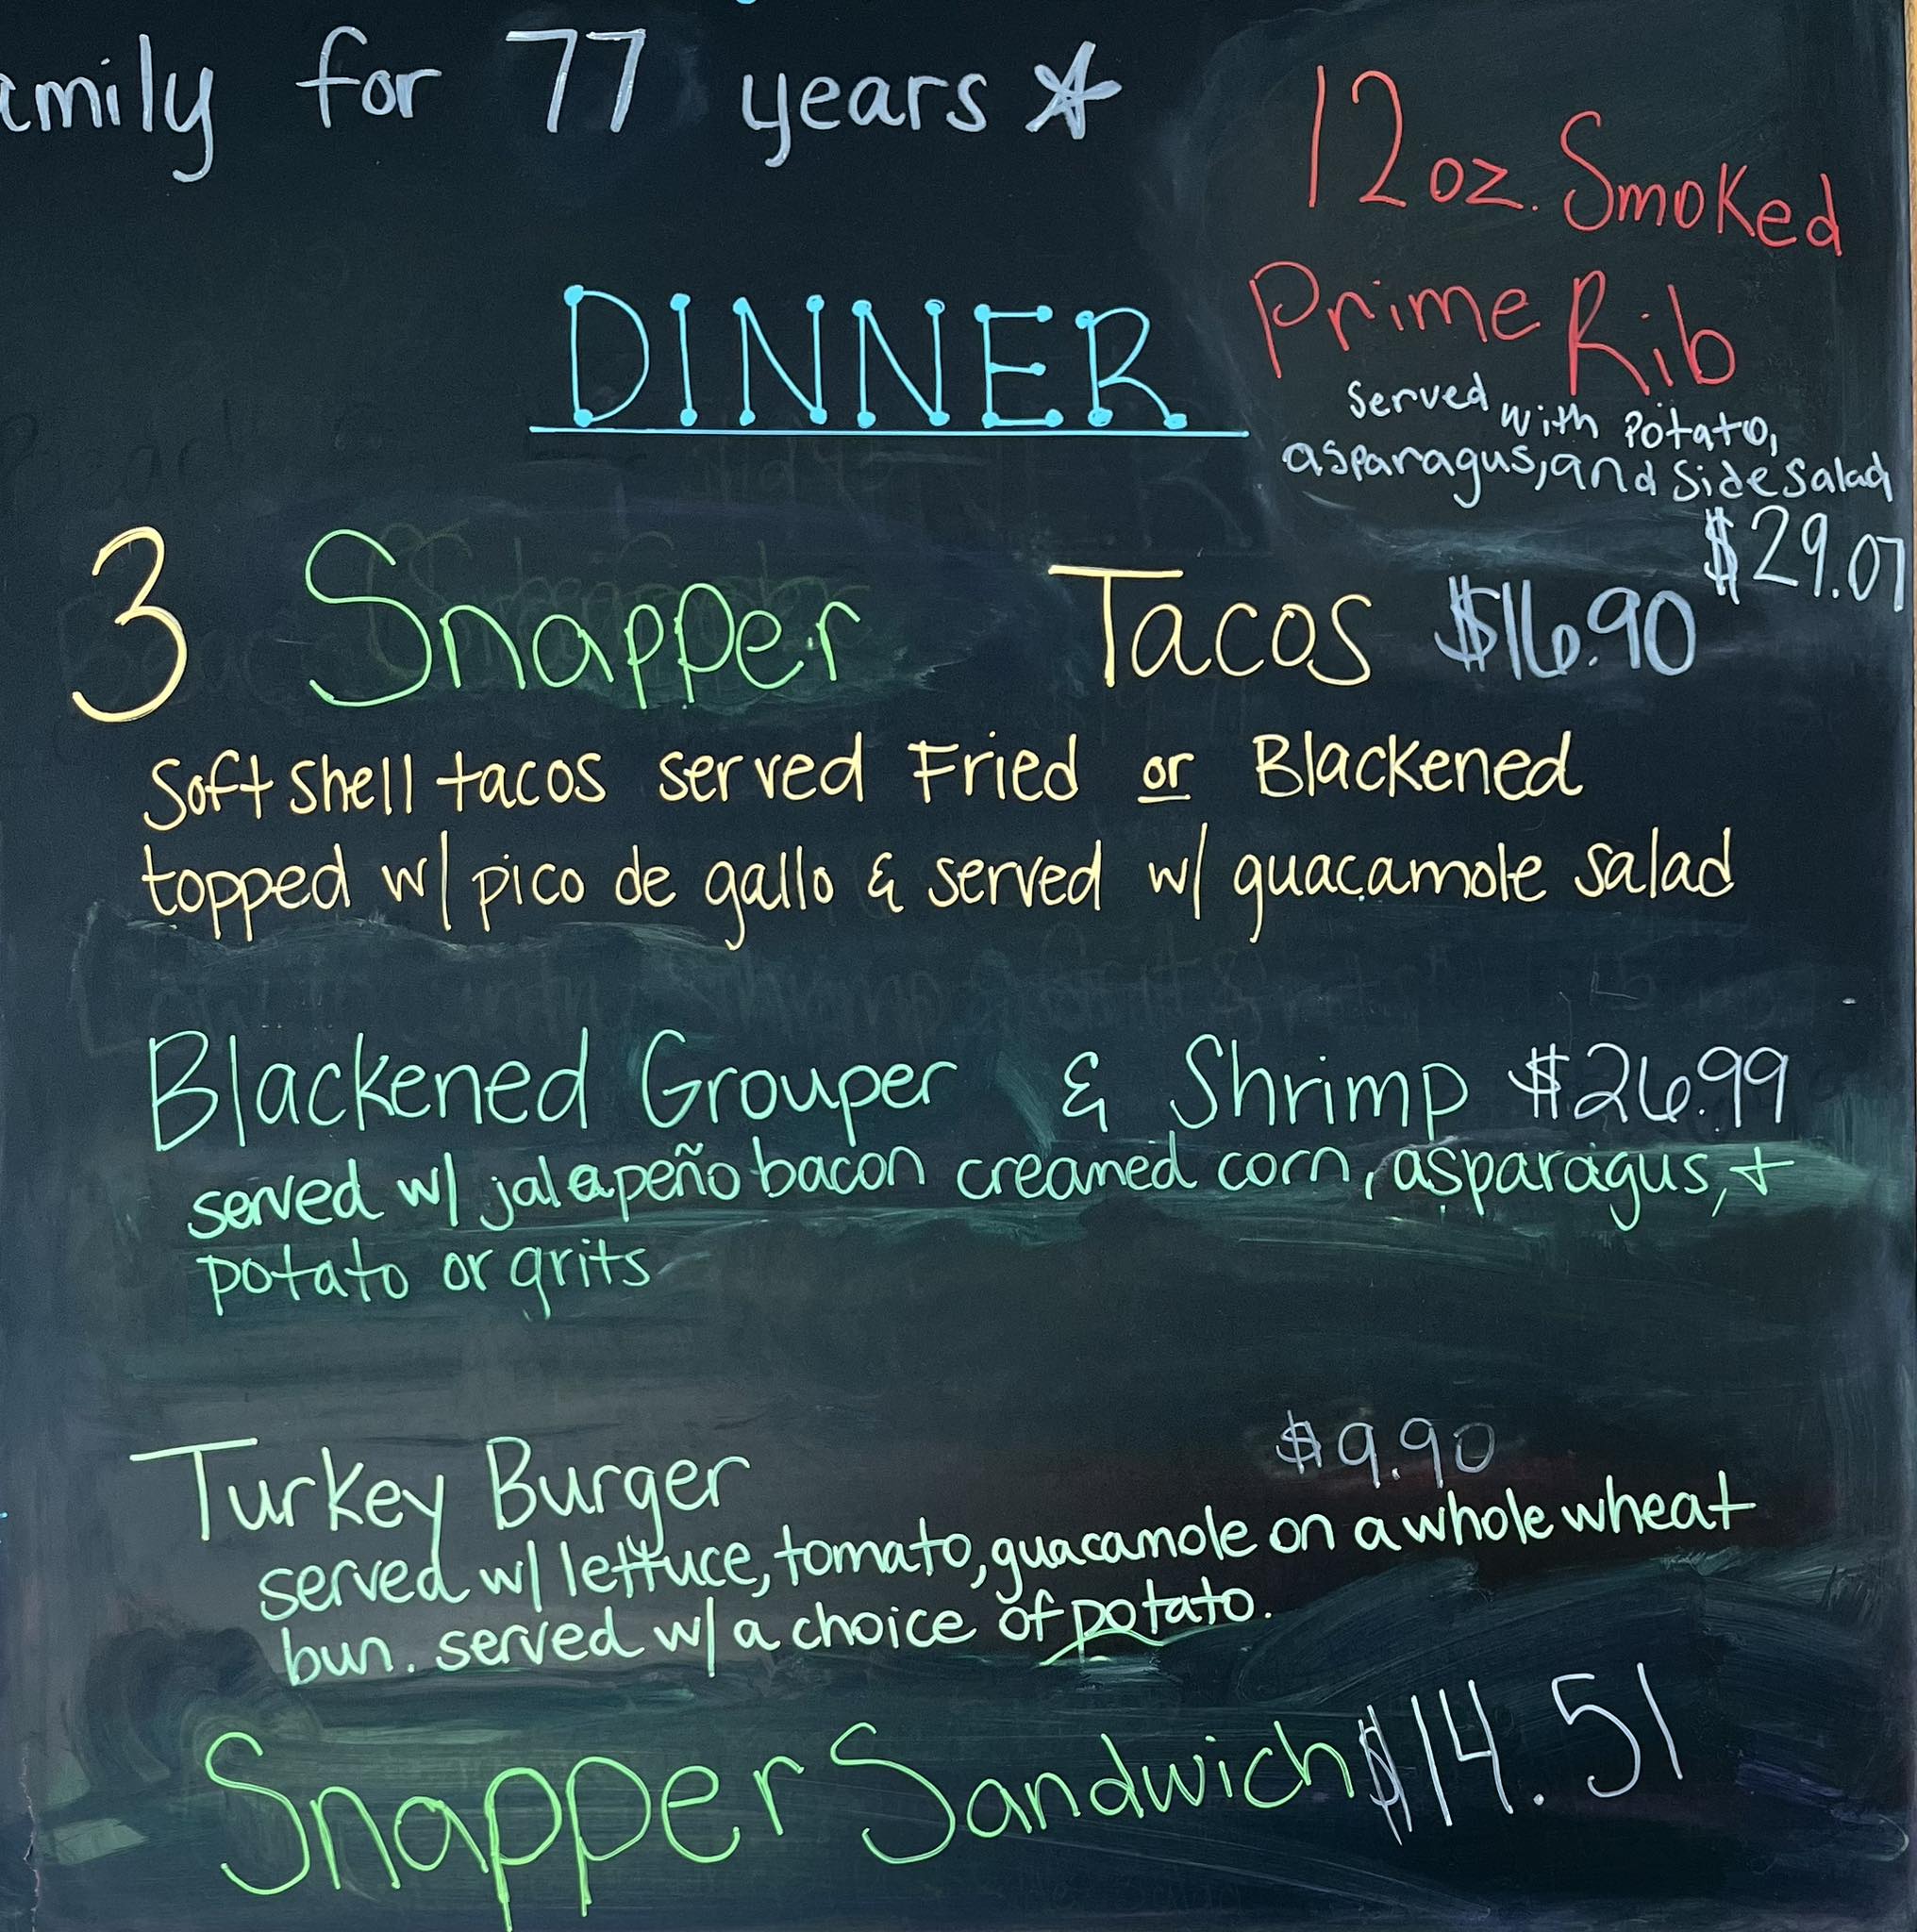 amily for 77 years *
12 oz. Smoked
Prime Rib
served with potato,
asparagus, and side salad
$29.07
DINNER
3 Snapper Tacos $16.90
Soft shell tacos served Fried or Blackened
topped w/ pico de gallo & served w/ guacamole salad
Blackened Grouper & Shrimp $26.99
served w/ jalapeño bacon creamed corn, asparagus, +
potato or grits
Turkey Burger $9.90
served w/ lettuce, tomato, guacamole on a whole wheat
bun. served w/ a choice of potato.
Snapper Sandwich $14.51